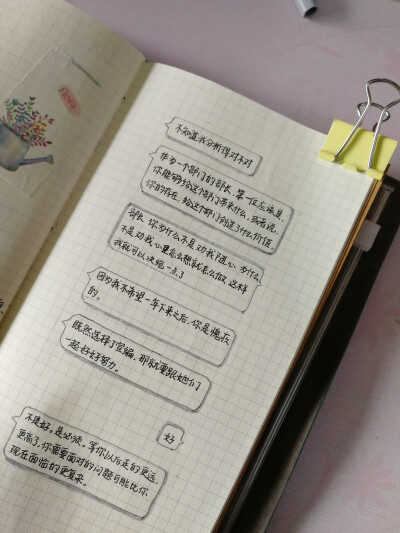 不知道我分析得对不对
作为一个部门的部长,第一位应该是,
你能够给这个部门带来什么,或者说,
你的存在,给这个部门创造了什么价值.
部长,你为什么不是劝我退心,为什么
不是劝我心里怎么想就怎么做,这样
我就可以决绝一点了
因为我不希望一年下来之后,你是愧疚
的。
既然选择了宣编,那就要跟她们
一起好好努力。
好
不是好,是必须。等你以后走的更远,
更高了,你需要面对的问题可能比你
现在面临的更复杂。